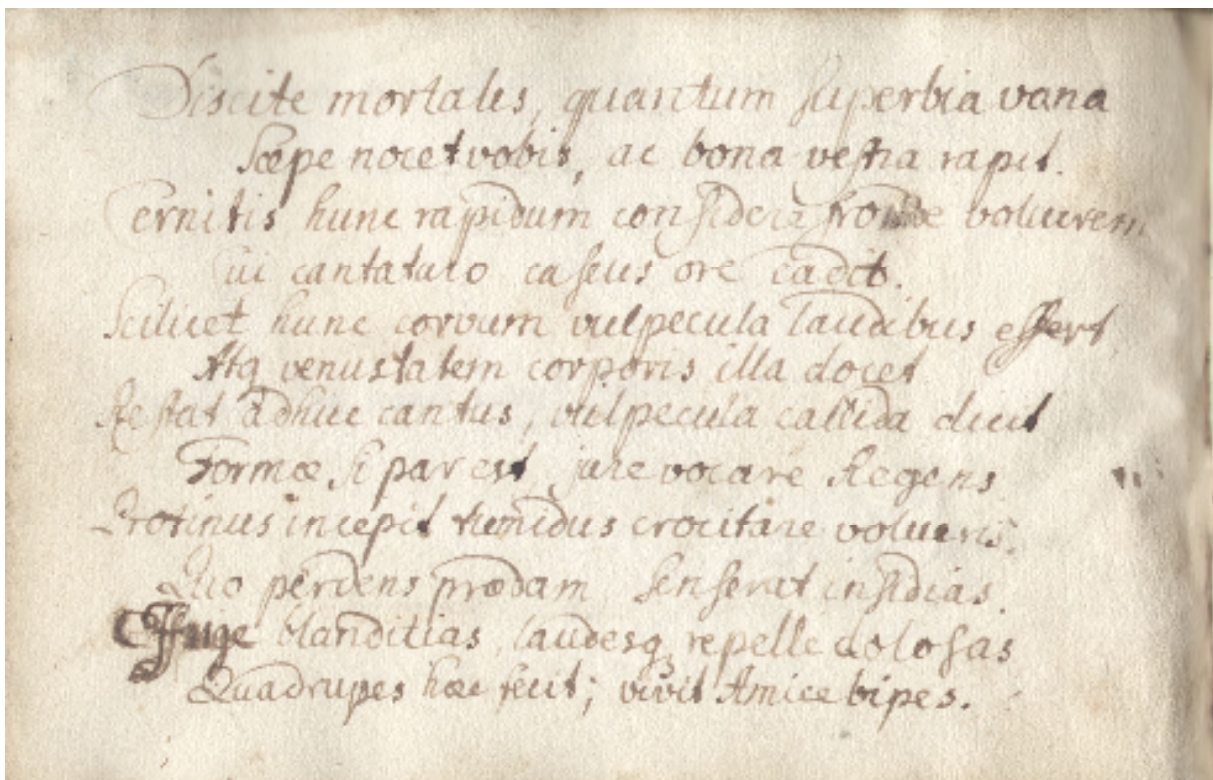 Discite mortales, quantum superbia vana
Sæpe nocet vobis, ac bona vestra rapit.
Cernitis hunc rapidum considere fronde volucrem
Cui cantaturo caseus ore cadit.
Scilicet hunc corvum vulpecula laudibus effert
Atq venustatem corporis illa docet
Restat adhuc cantus, vulpecula callida dicit
Formæ si par est, jure vocare Regens
Protinus incepit tumidus crocitare volucris.
Quo perdens prædam senserat insidias.
Effuge blanditias, laudesq repelle dolosas
Quadrupes hæc fecit; vivit Amice bipes.